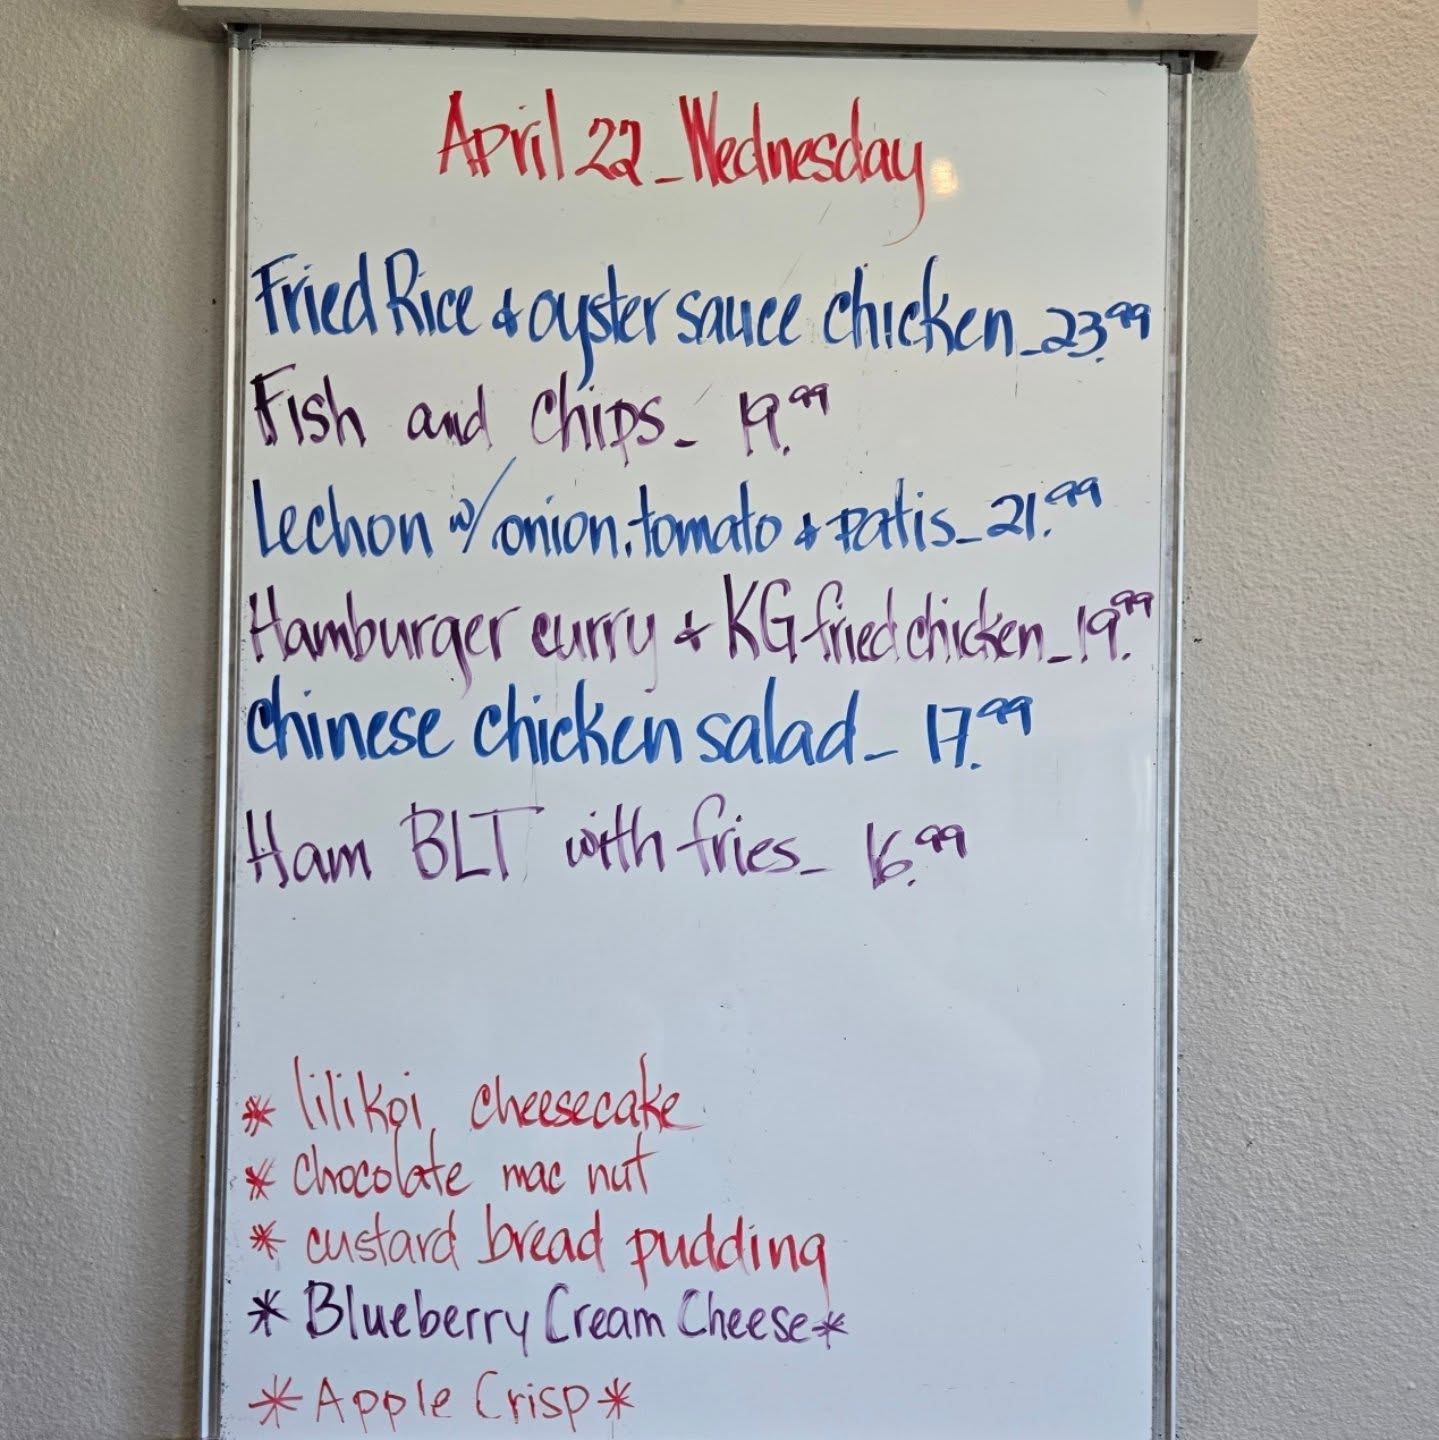 April 22 - Wednesday
Fried Rice & oyster sauce chicken - 23.99
Fish and chips - 19.99
Lechon w/ onion, tomato & patis - 21.99
Hamburger curry & KG fried chicken - 19.99
Chinese chicken salad - 17.99
Ham BLT with fries - 16.99
* lilikoi cheesecake
* chocolate mac nut
* custard bread pudding
* Blueberry Cream Cheese *
* Apple Crisp *